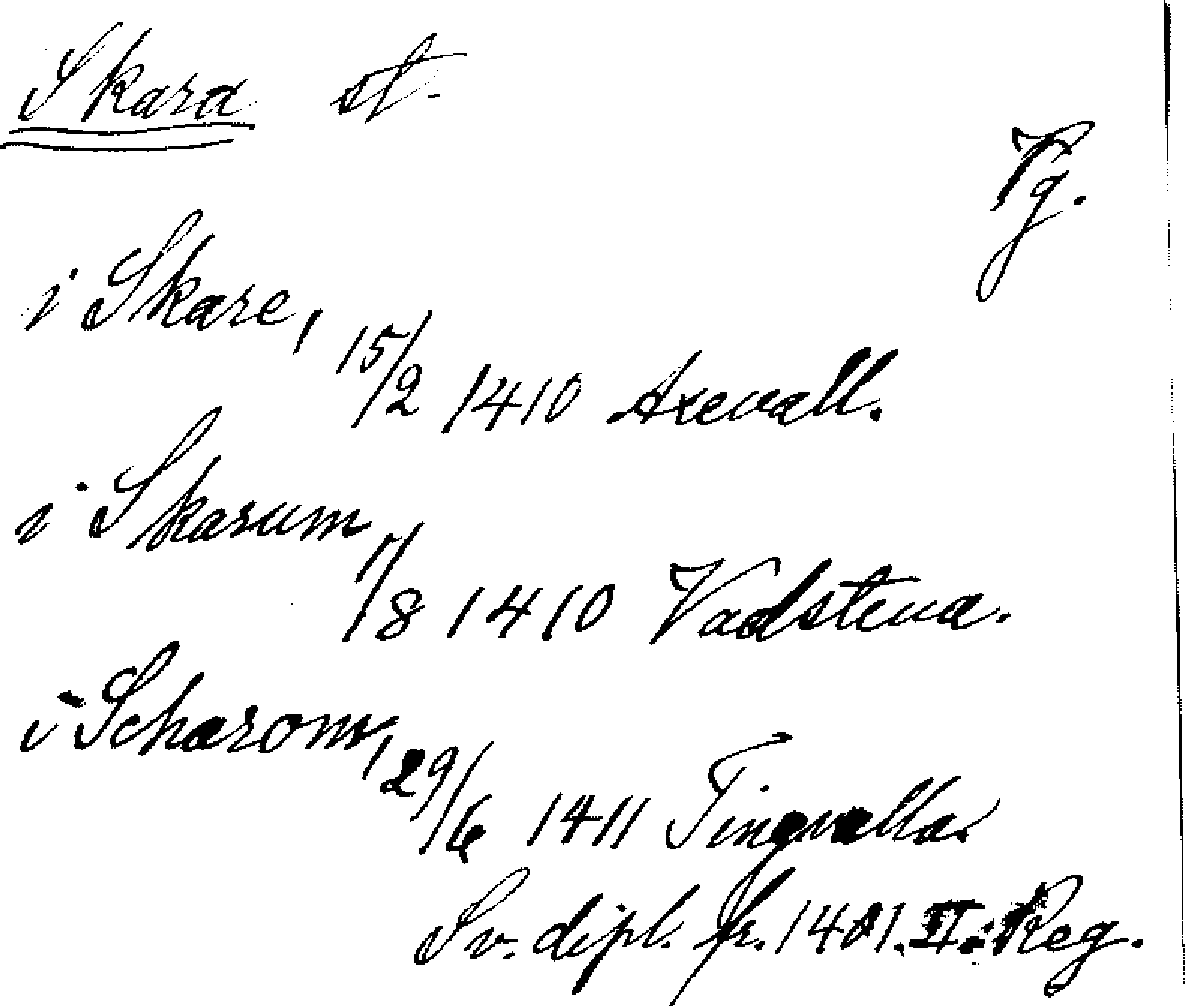 Skara st.
Vg.
i Skare, 15/2 1410 Axevall.
i Skarum, 1/8 1410 Vadstena.
i Scharom, 29/6 1411 Tingvalla.
Sv. dipl. fr. 1401. II: Reg.